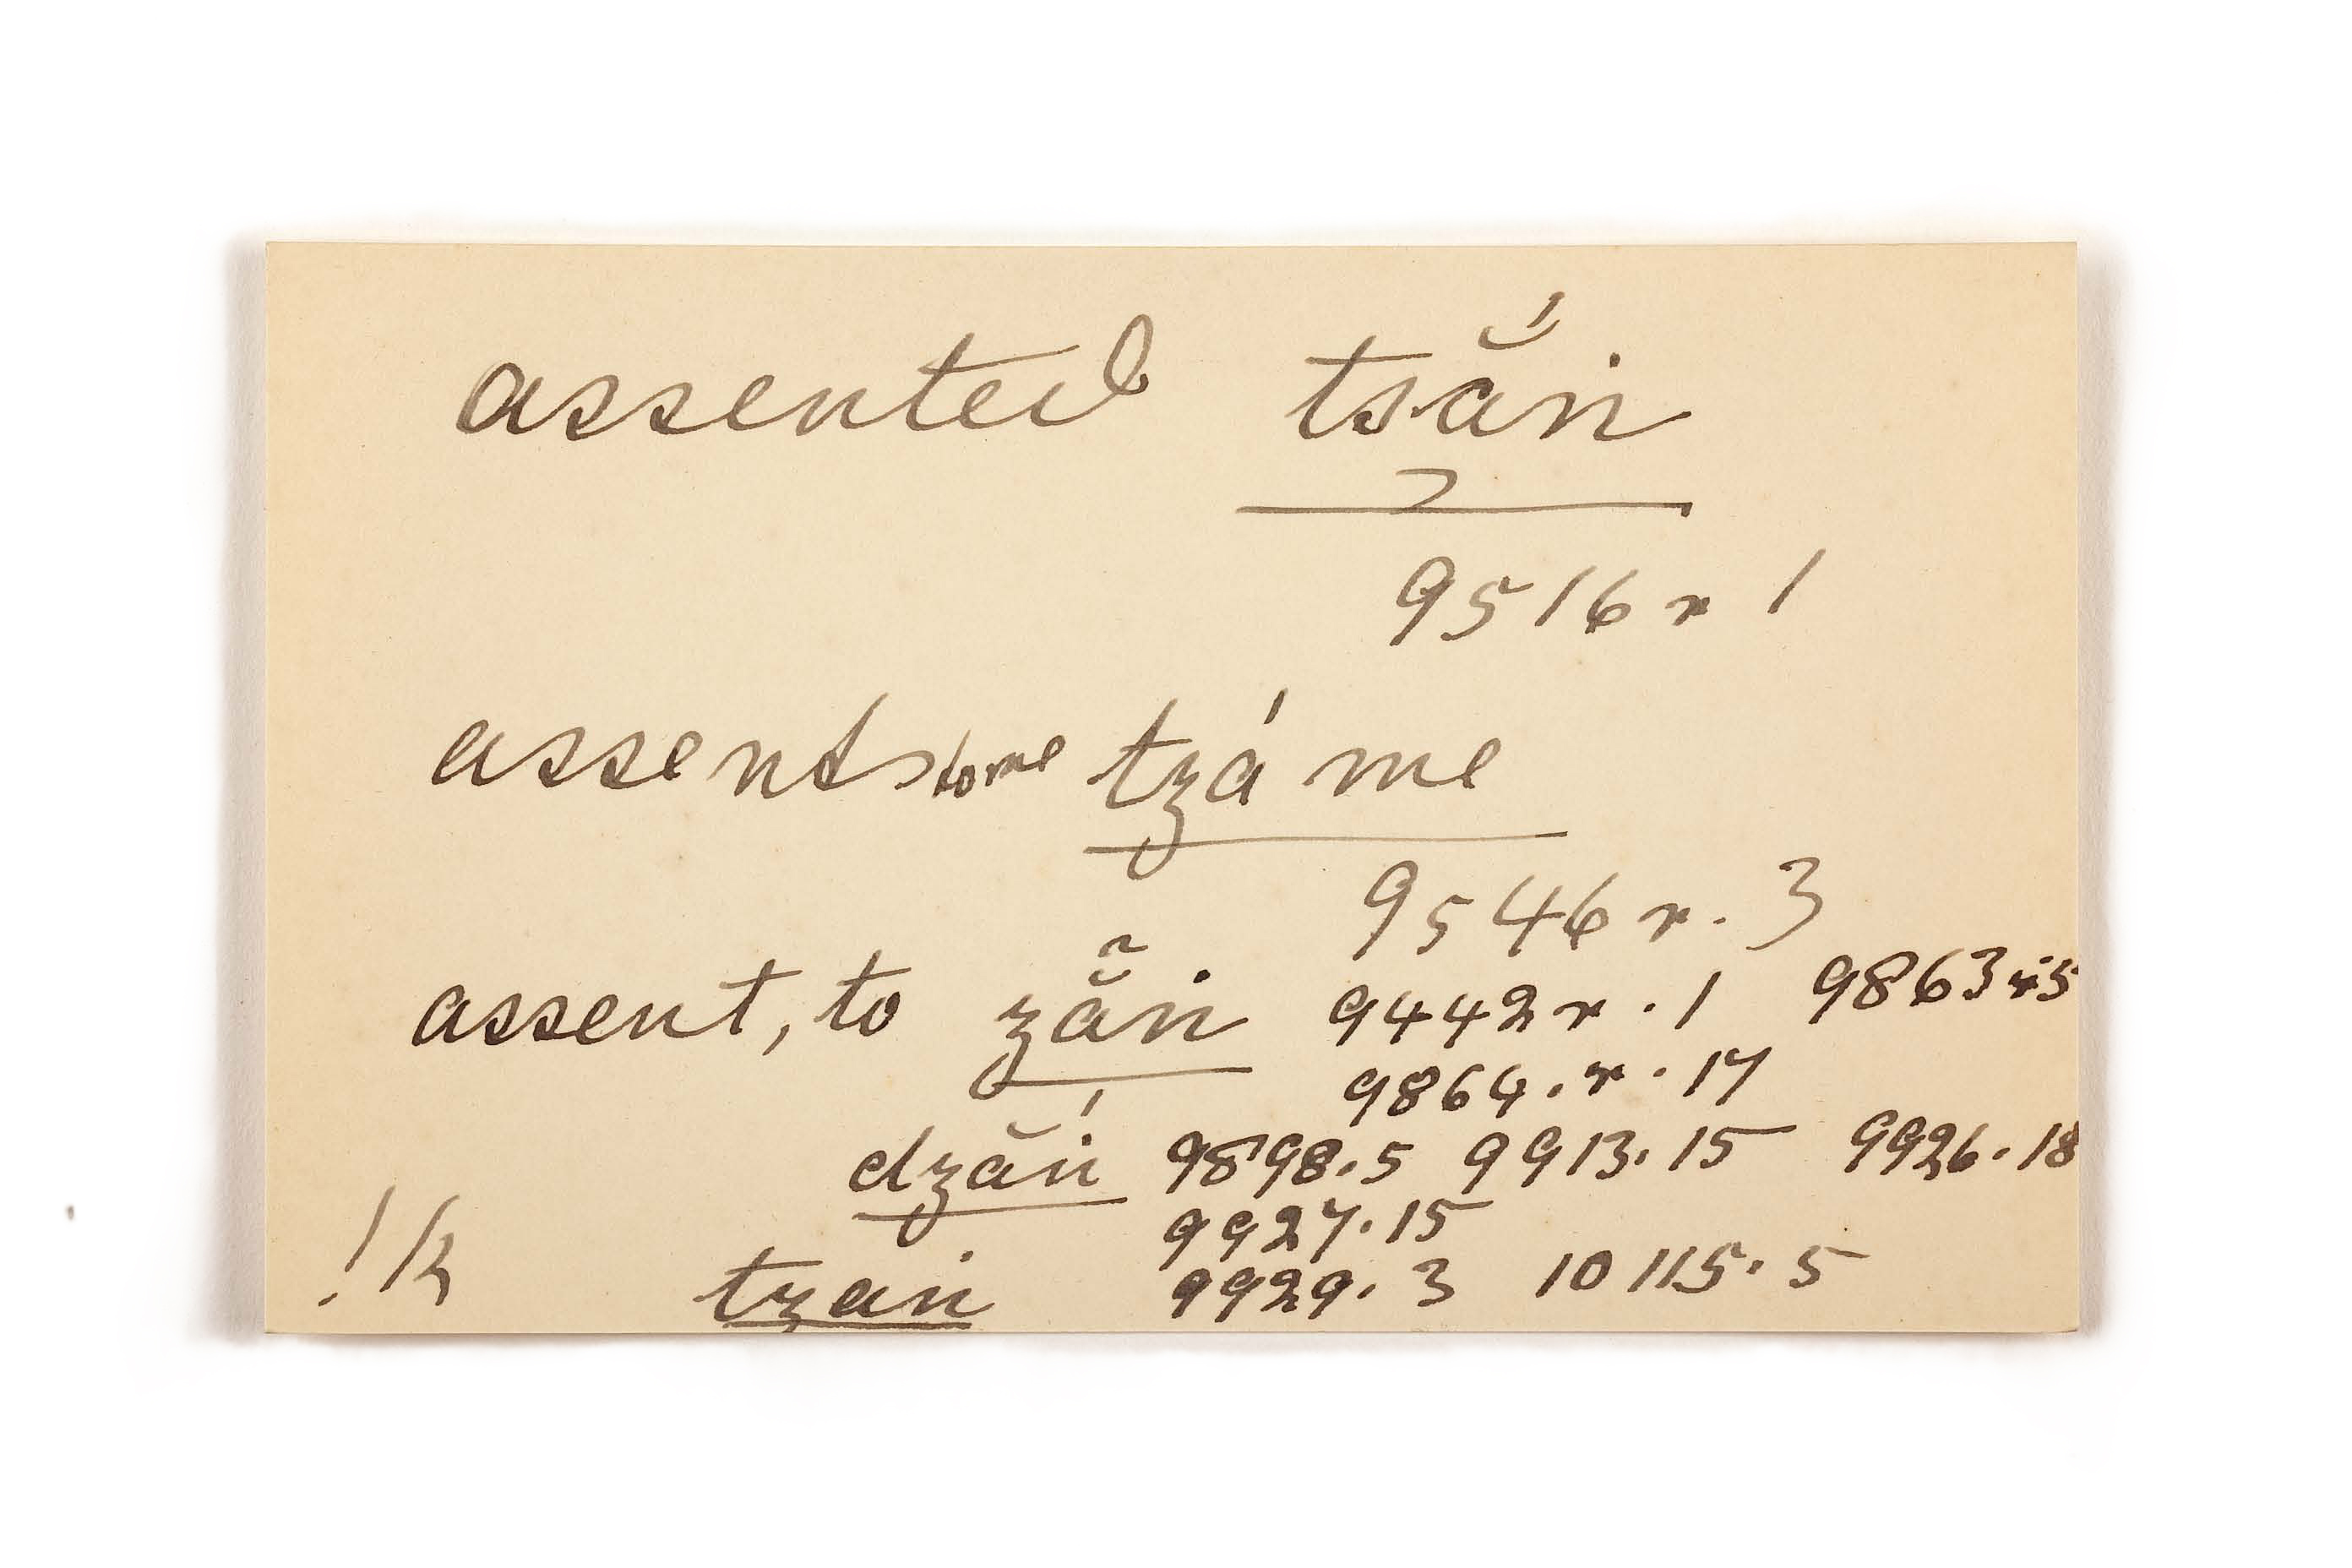 assented tsắṅ
9516 r 1
assents to me tzá me
9546 r. 3
assent, to zăṅ 9442 r. 1 9863 r. 5
9864. r. 17
dzắṅ 9898.5 9913.15 9926.18
9927.15
!k tzaṅ 9929.3 10115.5